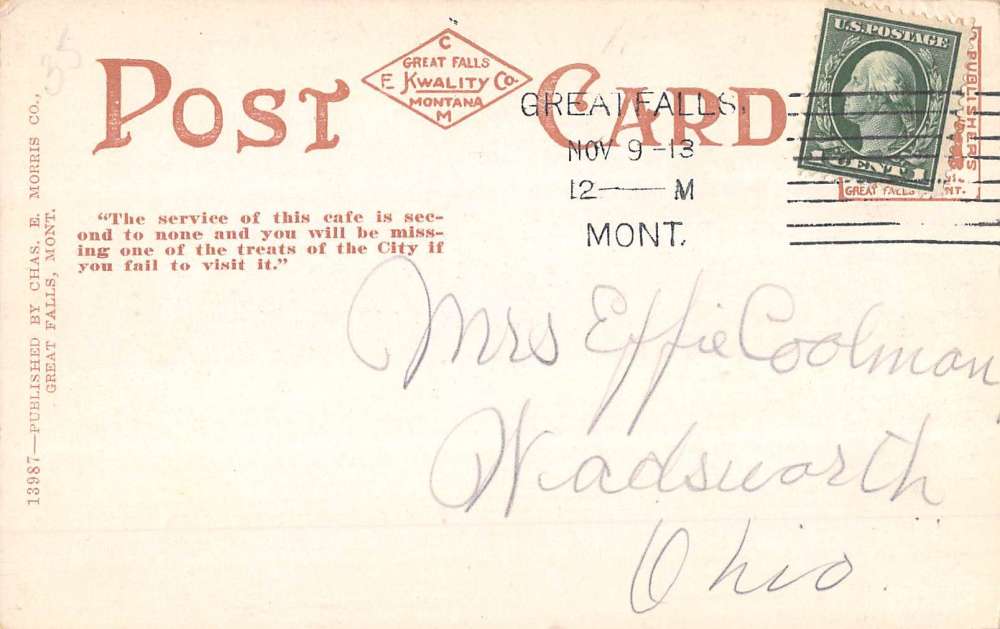 35
POST CARD
C
GREAT FALLS
E KWALITY Co.
MONTANA
M
U.S. POSTAGE
1 CENT 1
PUBLISHERS
GREAT FALLS
NT.
GREAT FALLS,
NOV 9 -13
12 — M
MONT.
"The service of this cafe is sec-
ond to none and you will be miss-
ing one of the treats of the City if
you fail to visit it."
13987—PUBLISHED BY CHAS. E. MORRIS CO.,
GREAT FALLS, MONT.
Mrs Effie Coolman
Wadsworth
Ohio.